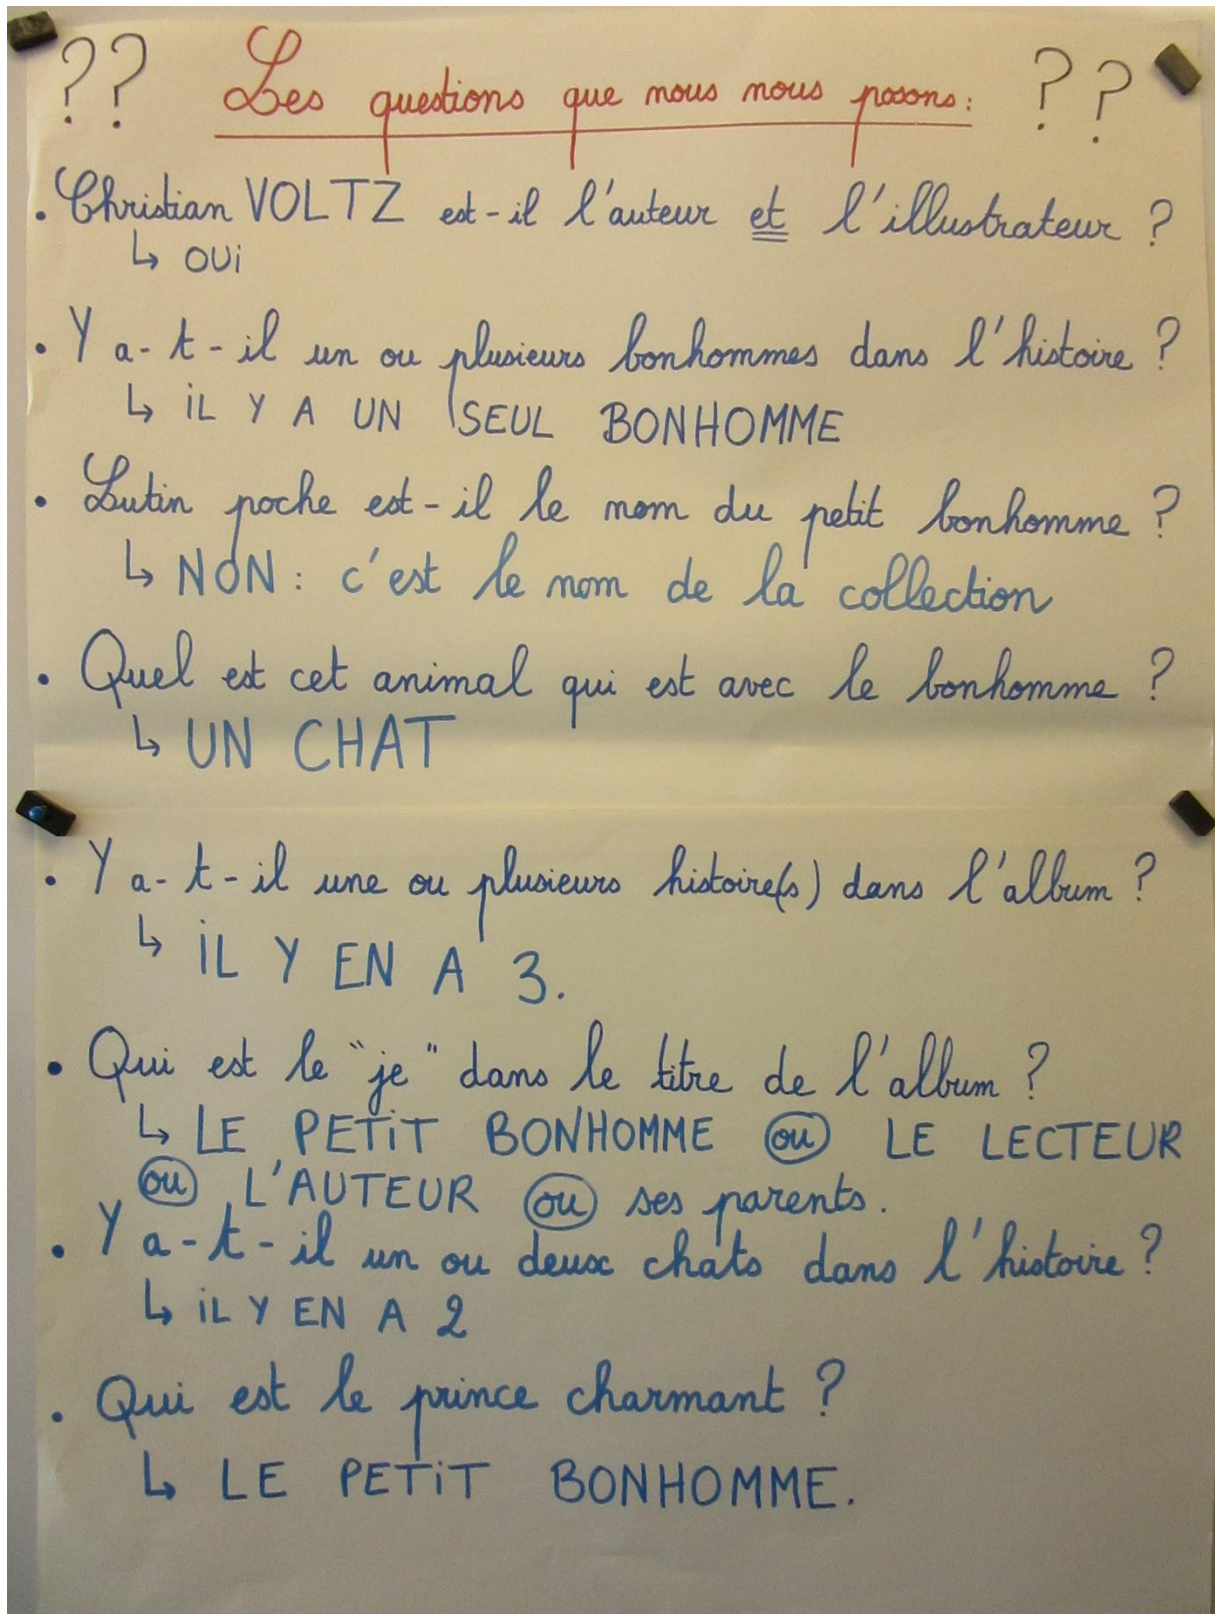 ?? Les questions que nous nous posons : ??
• Christian VOLTZ est-il l'auteur et l'illustrateur ?
↳ OUi
• Y a-t-il un ou plusieurs bonhommes dans l'histoire ?
↳ iL Y A UN SEUL BONHOMME
• Lutin poche est-il le nom du petit bonhomme ?
↳ NON : c'est le nom de la collection
• Quel est cet animal qui est avec le bonhomme ?
↳ UN CHAT
• Y a-t-il une ou plusieurs histoire(s) dans l'album ?
↳ iL Y EN A 3.
• Qui est le "je" dans le titre de l'album ?
↳ LE PETiT BONHOMME ou LE LECTEUR
ou L'AUTEUR ou ses parents.
• Y a-t-il un ou deux chats dans l'histoire ?
↳ iL Y EN A 2
• Qui est le prince charmant ?
↳ LE PETiT BONHOMME.